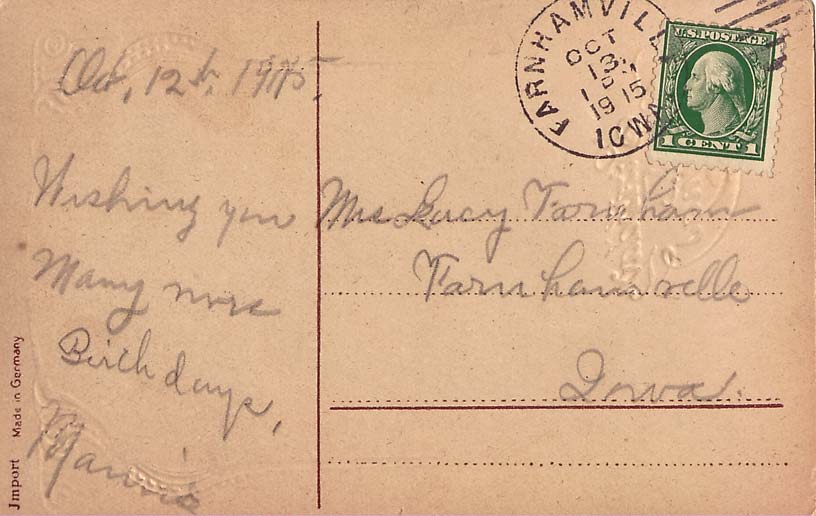 Oct, 12th, 1915,
Wishing you
Many more
Birthdays,
Mannie
Mrs Lucy Farnham
Farnhamville
Iowa.
FARNHAMVILLE
OCT
13
1 P
1915
IOWA
U.S. POSTAGE
1 CENT 1
Jmport Made in Germany